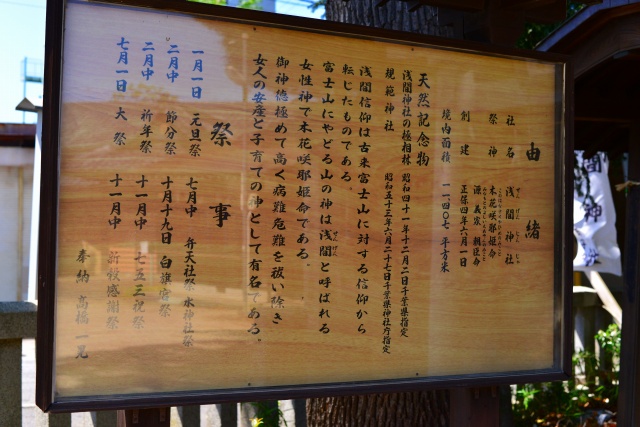 由緒
社名 浅間神社
せんげんじんじゃ
祭神 木花咲耶姫命
源義家朝臣命
創建 正保四年六月一日
境内面積 一一、四〇七平方米
天然記念物
浅間神社の極相林 昭和四十一年十二月二日千葉県指定
規範神社 昭和五十三年六月二十七日千葉県神社庁指定
浅間信仰は古来富士山に対する信仰から
転じたものである。
富士山にやどる山の神は浅間と呼ばれる
せんげん
女性神で木花咲耶姫命である。
御神徳極めて高く病難危難を祓い除き
女人の安産と子育ての神として有名である。
祭事
一月一日 元旦祭
二月中 節分祭
二月中 祈年祭
七月一日 大祭
七月中 弁天社祭・水神社祭
十月十九日 白旗宮祭
十一月中 七五三祝祭
十一月中 新穀感謝祭
奉納 高橋一兄
間神社